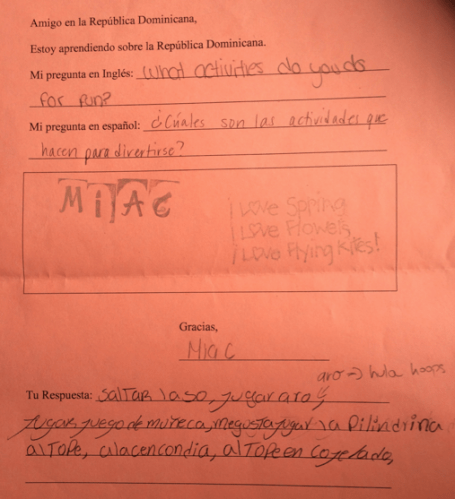 Amigo en la República Dominicana,
Estoy aprendiendo sobre la República Dominicana.
Mi pregunta en Inglés: What activities do you do
for fun?
Mi pregunta en español: ¿Cúales son las actividades que
hacen para divertirse?
MiAC
I Love Spring
I Love Flowers
I Love Flying Kites!
Gracias,
Mia C
aro → hula hoops
Tu Respuesta: SalTar laso, jugar aro,
Jugar juego de muñeca, me gusta jugar la Pilindrina
al Tope, a la cencondia, al Tope en